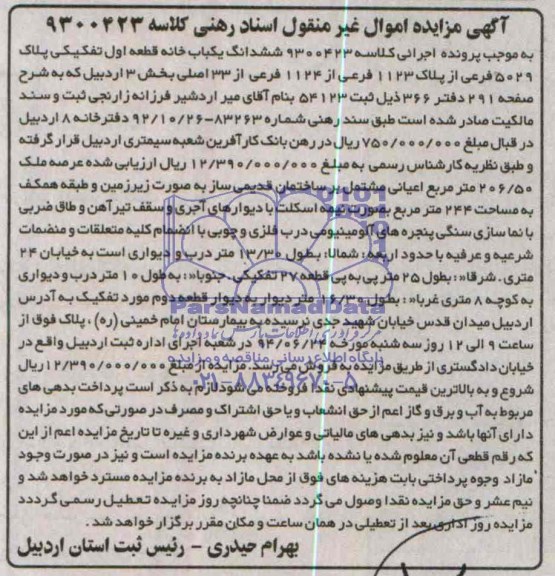 آگهی مزایده اموال غیر منقول اسناد رهنی کلاسه ۹۳۰۰۴۲۳
به موجب پرونده اجرائی کلاسه ۹۳۰۰۴۲۳ ششدانگ یکباب خانه قطعه اول تفکیکی پلاک
۵۰۲۹ فرعی از پلاک ۱۱۲۳ فرعی از ۱۱۲۴ فرعی از ۳۳ اصلی بخش ۳ اردبیل که به شرح
صفحه ۲۹۱ دفتر ۳۶۶ ذیل ثبت ۵۴۱۲۳ بنام آقای میر اردشیر فرزانه زارنجی ثبت و سند
مالکیت صادر شده است طبق سند رهنی شماره ۸۳۲۶۳-۹۲/۱۰/۲۶ دفترخانه ۸ اردبیل
در قبال مبلغ ۷۵۰/۰۰۰/۰۰۰ ریال در رهن بانک کارآفرین شعبه سیمتری اردبیل قرار گرفته
و طبق نظریه کارشناس رسمی به مبلغ ۱۲/۳۹۰/۰۰۰/۰۰۰ ریال ارزیابی شده عرصه ملک
۲۰۶/۵۰ متر مربع اعیانی مشتمل بر ساختمان قدیمی ساز به صورت زیرزمین و طبقه همکف
به مساحت ۲۴۴ متر مربع بصورت نیمه اسکلت با دیوارهای آجری و سقف تیرآهن و طاق ضربی
با نماسازی سنگی پنجره های آلومینیومی درب فلزی و چوبی با انضمام کلیه متعلقات و منضمات
شرعیه و عرفیه با حدود اربعه : شمالا: بطول ۱۳/۳۰ متر درب و دیواری است به خیابان ۲۴
متری . شرقا«: بطول ۲۵ متر پی به پی قطعه ۲۷ تفکیکی . جنوبا«: به طول ۱۰ متر درب و دیواری
به کوچه ۸ متری غربا«: بطول ۱۶/۳۰ متر دیوار به دیوار قطعه دوم مورد تفکیک به آدرس
اردبیل میدان قدس خیابان شهید جدی نرسیده به بیمارستان امام خمینی (ره) ، پلاک فوق از
ساعت ۹ الی ۱۲ روز سه شنبه مورخه ۹۴/۰۶/۲۴ در شعبه اجرای اداره ثبت اردبیل واقع در
خیابان دادگستری از طریق مزایده به فروش می رسد. مزایده از مبلغ ۱۲/۳۹۰/۰۰۰/۰۰۰ ریال
شروع و به بالاترین قیمت پیشنهادی نقدا فروخته می شود لازم به ذکر است پرداخت بدهی های
مربوط به آب و برق و گاز اعم از حق انشعاب و یا حق اشتراک و مصرف در صورتی که مورد مزایده
دارای آنها باشد و نیز بدهی های مالیاتی و عوارض شهرداری و غیره تا تاریخ مزایده اعم از این
که رقم قطعی آن معلوم شده یا نشده باشد به عهده برنده مزایده است و نیز در صورت وجود
مازاد وجوه پرداختی بابت هزینه های فوق از محل مازاد به برنده مزایده مسترد خواهد شد و
نیم عشر و حق مزایده نقدا وصول می گردد ضمنا چنانچه روز مزایده تعطیل رسمی گرددد
مزایده روز اداری بعد از تعطیلی در همان ساعت و مکان مقرر برگزار خواهد شد .
بهرام حیدری - رئیس ثبت استان اردبیل
ParsNamadData
پایگاه اطلاع رسانی مناقصه و مزایده
۰۲۱-۸۸۳۴۹۶۷۰-۵